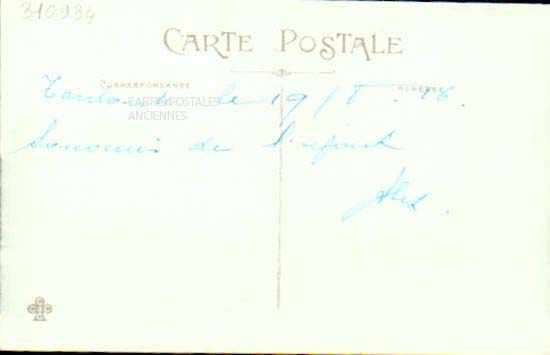 310934
CARTE POSTALE
CORRESPONDANCE
ADRESSE
le 19/8. 16.
CARTES POSTALES
ANCIENNES
Souvenir de
Alex.